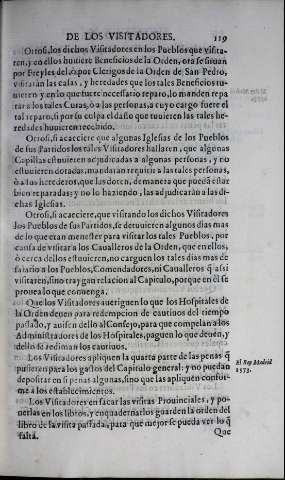 DE LOS VISITADORES. 119
Otrosi, los dichos Visitadores en los Pueblos que visita-
ren, y en ellos huuiere Beneficios de la Orden, ora se siruan
por Freyles del, ò por Clerigos de la Orden de San Pedro,
visitaràn las casas, y heredades que los tales Beneficios tu-
uieren y en lo que fuere necessario reparo, lo manden repa
rar a los tales Curas, ò a las personas, a cuyo cargo fuere el
tal reparo, si por su culpa el daño que tuuieren las tales he-
redades huuieren recibido.
Otrosi, si acaeciere que algunas Iglesias de los Pueblos
de sus Partidos los tales Visitadores hallaren, que algunas
Capillas estuuieren adjudicadas a algunas personas, y no
estuuieren dotadas, mandaràn requirir a las tales personas,
ò a sus herederos, que las doten, de manera que pueda estar
bien reparadas: y no lo haziendo, las adjudicaràn a las di-
chas Iglesias.
Otrosi, si acaeciere, que visitando los dichos Visitadores
los Pueblos de sus Partidos, se detuuieren algunos dias mas
de lo que eran menester para visitar los tales Pueblos, por
causa de visitar a los Caualleros de la Orden, que en ellos,
ò cerca dellos estuuieren, no carguen los tales dias mas de
salario a los Pueblos, Comendadores, ni Caualleros q̃ assi
visitaren, sino traygan relacion al Capitulo, porque en èl se
prouea lo que conuenga.
Que los Visitadores aueriguen lo que los Hospitales de
la Orden deuen para redempcion de cautiuos del tiempo
passado, y auisen dello al Consejo, para que compelan a los
Administradores de los Hospitales, paguen lo que deuen, y
dello se rediman los cautiuos.
Los Visitadores apliquen la quarta parte de las penas q̃
pusieren para los gastos del Capitulo general: y no puedan
depositar en si penas algunas, sino que las apliquen confor-
me a los establecimientos.
El Rey Madrid
1573.
Los Visitadores en sacar las visitas Prouinciales, y po-
nerlas en los libros, y enquadernarlos guarden la orden del
libro de la visita passada, para que mejor se pueda ver lo q̃
falta.
Que